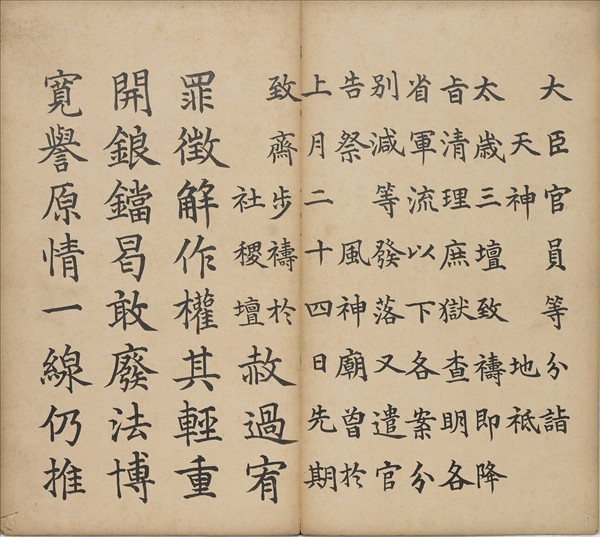 大臣官員等分詣
天神 地祇
太歲三壇致禱即降
旨清理庶獄查明各
省軍流以下各案分
别減等發落又遣官
告祭 風神廟曾於
上月二十四日先期
致齋步禱於
社稷壇
赦過宥
罪徵解作權其輕重
開鋃鐺曷敢廢法博
寬譽原情一線仍推